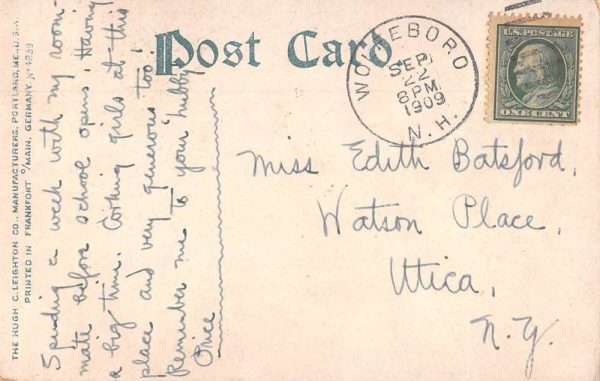 Post Card.
WOLFEBORO
SEP
2
8 PM
1909
N.H.
U.S. POSTAGE
ONE CENT
Miss Edith Batsford,
Watson Place,
Utica,
N.Y.
Spending a week with my room-
mate before school opens. Having
a big time. Corking girls at this
place and very generous too!
Remember me to your "hubby"
Price
THE HUGH C. LEIGHTON CO., MANUFACTURERS, PORTLAND, ME., U.S.A.
PRINTED IN FRANKFORT O/MAIN, GERMANY. No 4239